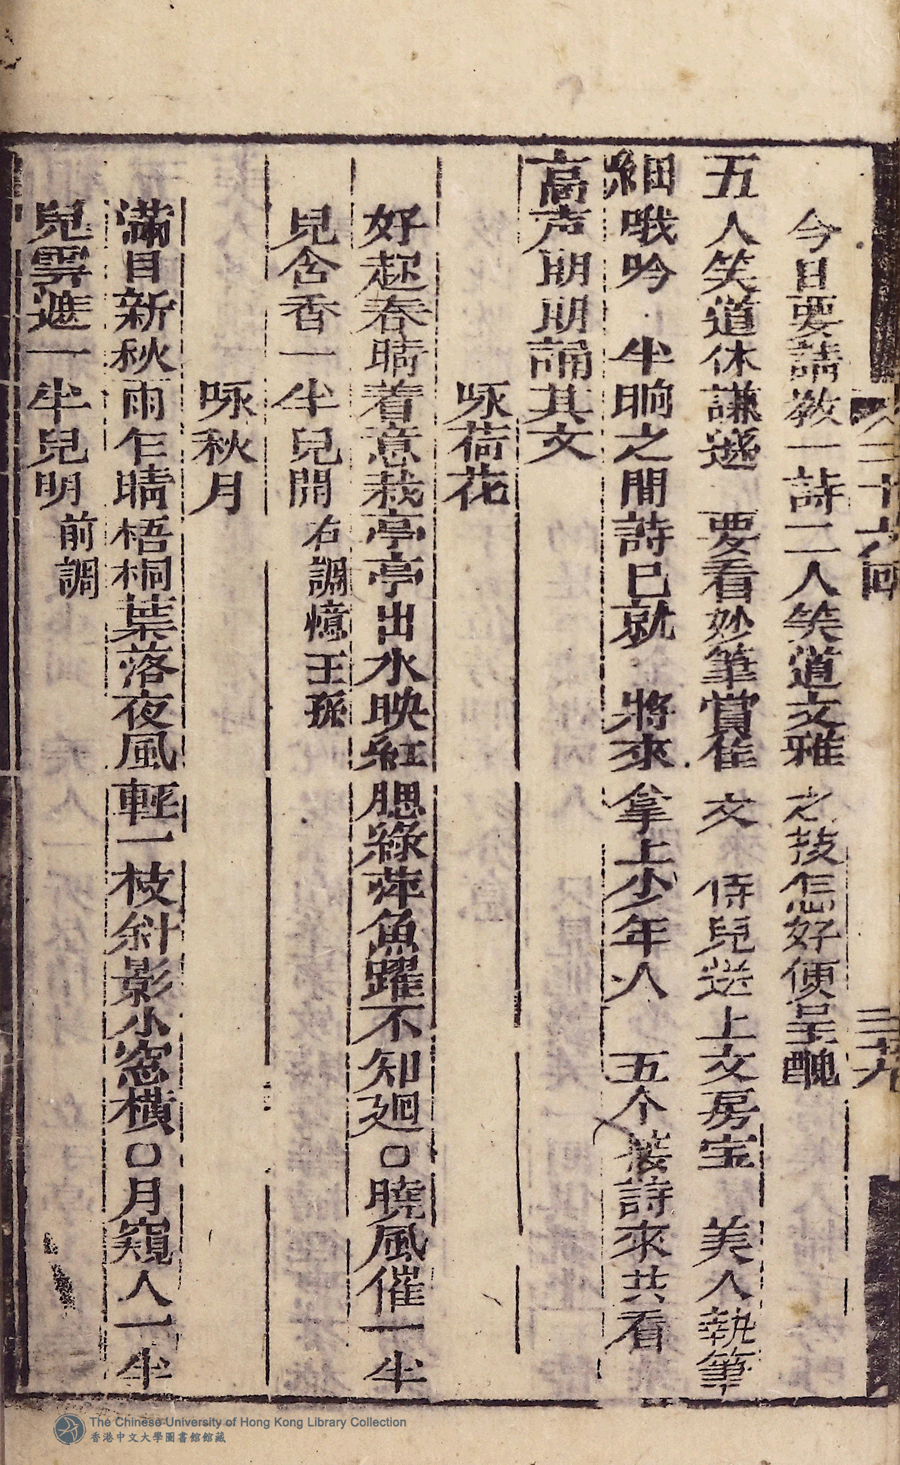 二十六國
三十九
今日要請教一詩二人笑道文雅之技怎好便呈醜
五人笑道休謙遜 要看妙筆賞佳文 侍兒送上文房宝 美人執筆
細哦吟 半晌之間詩已就 將來拿上少年人 五个接詩來共看
高声朗朗誦其文
咏荷花
好趁春晴着意栽亭亭出水映紅腮綠萍魚躍不知廻○曉風催一半
兒含香一半兒開 右調憶王孫
咏秋月
滿目新秋雨乍晴梧桐葉落夜風輕一枝斜影小窓橫○月窺人一半
兒雲遮一半兒明 前調
The Chinese University of Hong Kong Library Collection
香港中文大學圖書館館藏